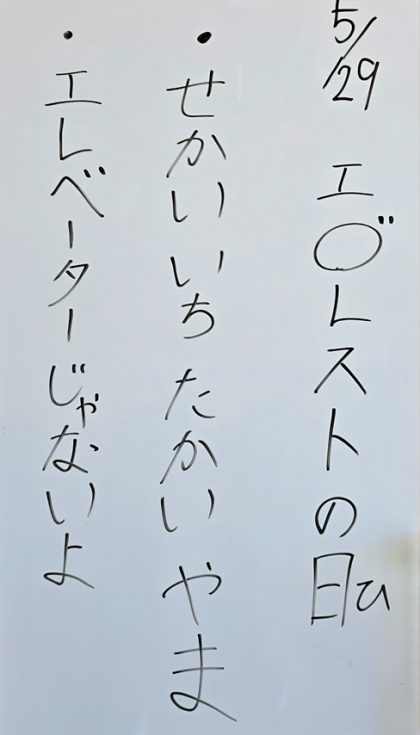 5/29 エ◯゛レストの日ひ
・せかいいち たかい やま
・エレベーターじゃないよ